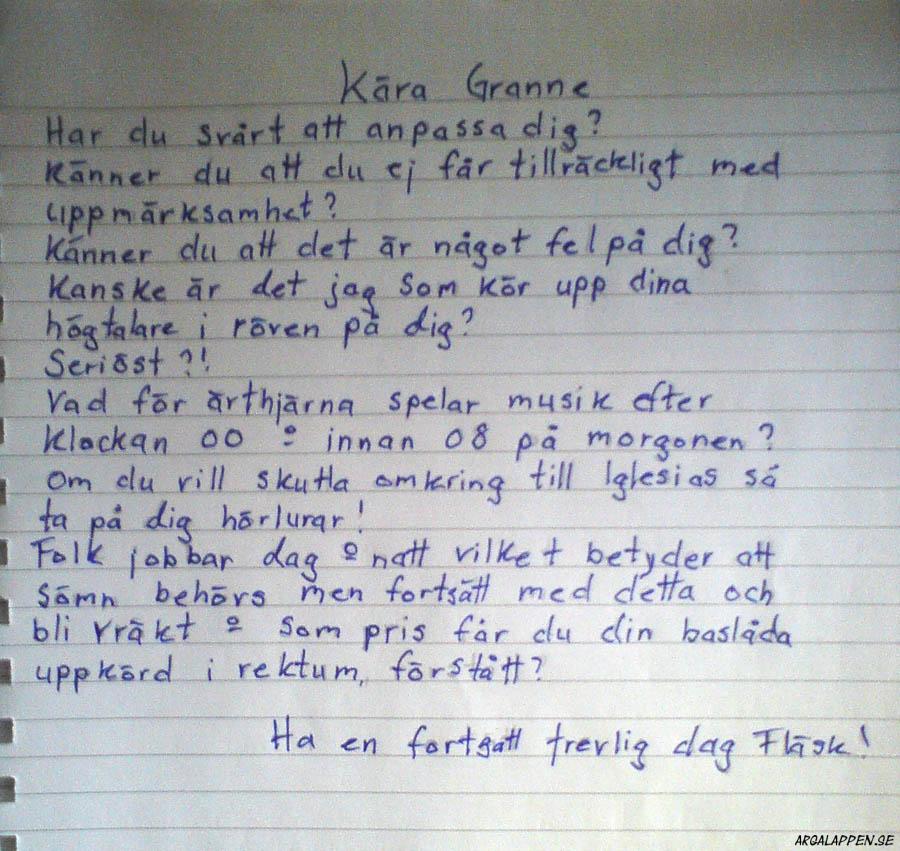 Kära Granne
Har du svårt att anpassa dig?
Känner du att du ej får tillräckligt med
uppmärksamhet?
Känner du att det är något fel på dig?
Kanske är det jag som kör upp dina
högtalare i röven på dig?
Seriöst?!
Vad för ärthjärna spelar musik efter
klockan 00 º innan 08 på morgonen?
Om du vill skutta omkring till Iglesias så
ta på dig hörlurar!
Folk jobbar dag º natt vilket betyder att
sömn behövs men fortsätt med detta och
bli vräkt º som pris får du din baslåda
uppkörd i rektum, förstått?
Ha en fortsatt trevlig dag Fläsk!
ARGALAPPEN.SE